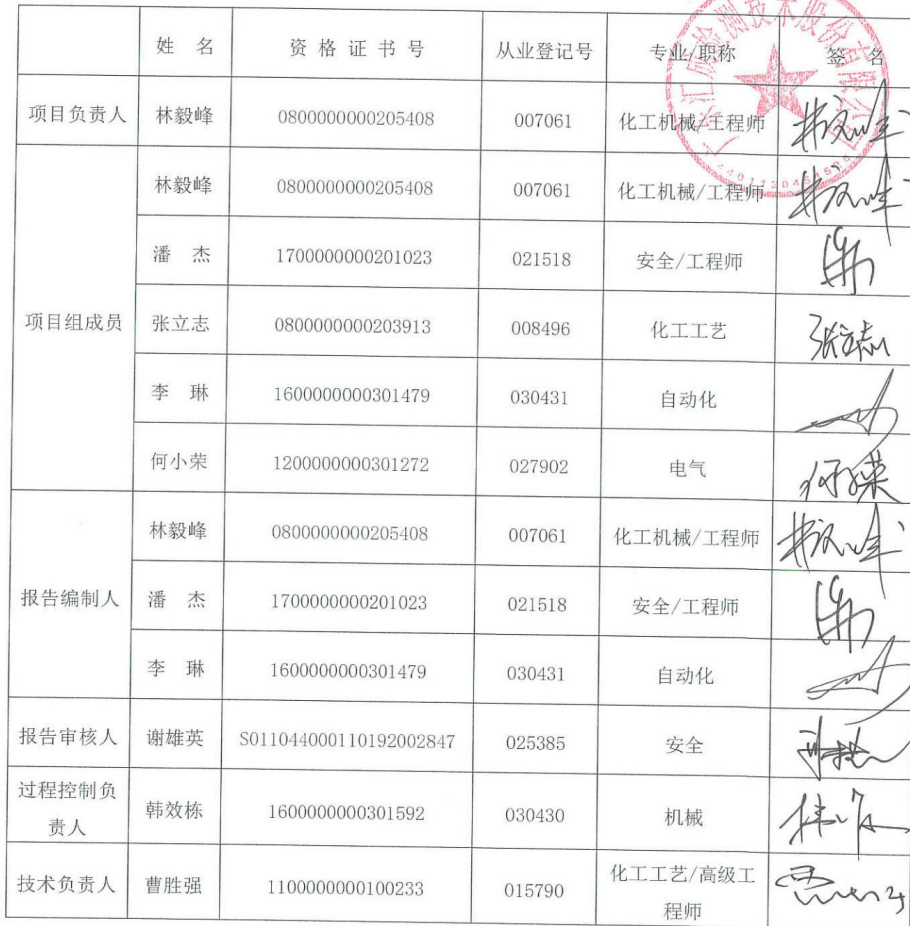 姓 名 资 格 证 书 号 从业登记号 专业/职称 签 名
项目负责人 林毅峰 0800000000205408 007061 化工机械/工程师 林毅峰
项目组成员 林毅峰 0800000000205408 007061 化工机械/工程师 林毅峰
潘 杰 1700000000201023 021518 安全/工程师
张立志 0800000000203913 008496 化工工艺 张立志
李 琳 1600000000301479 030431 自动化
何小荣 1200000000301272 027902 电气 何小荣
报告编制人 林毅峰 0800000000205408 007061 化工机械/工程师 林毅峰
潘 杰 1700000000201023 021518 安全/工程师
李 琳 1600000000301479 030431 自动化
报告审核人 谢雄英 S011044000110192002847 025385 安全
过程控制负
责人 韩效栋 1600000000301592 030430 机械
技术负责人 曹胜强 1100000000100233 015790 化工工艺/高级工
程师
检测技术股份有限公司